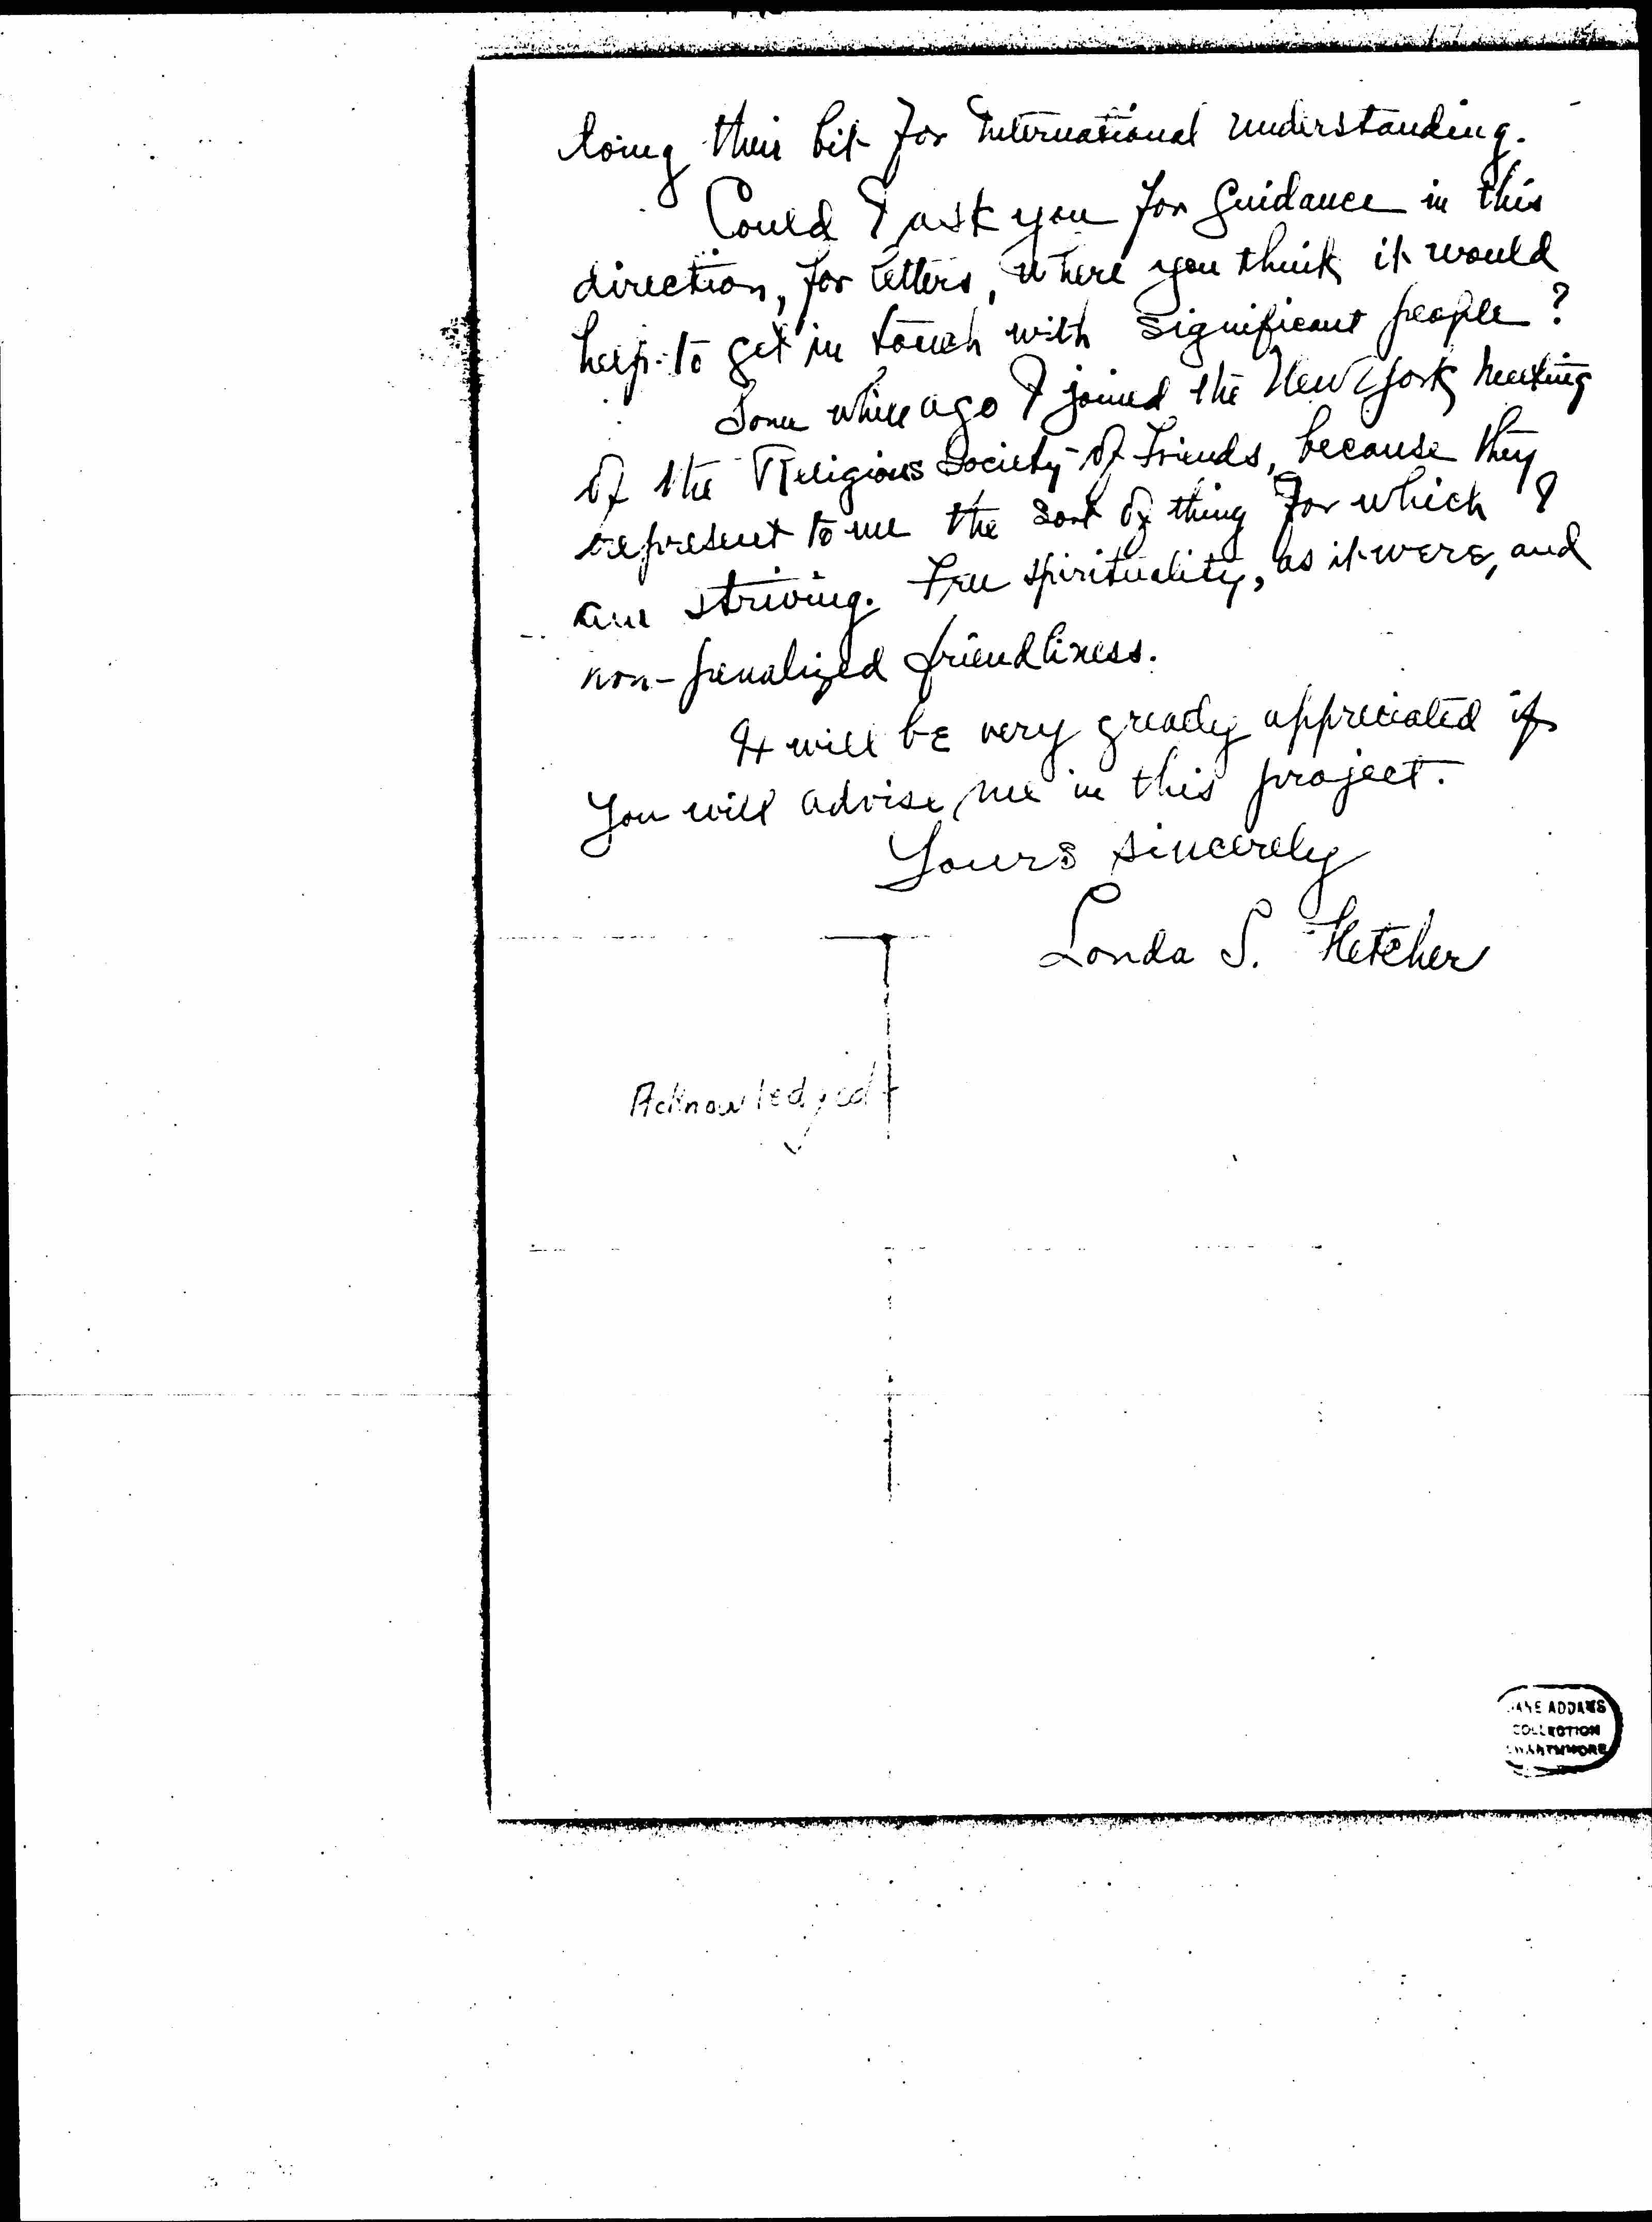 doing their bit for international understanding.
Could I ask you for guidance in this
direction, for letters, where you think it would
help to get in touch with significant people?
Some while ago I joined the New York Meeting
of the Religious Society of Friends, because they
represent to me the sort of thing for which I
am striving. Free spirituality, as it were, and
non-penalized friendliness.
It will be very greatly appreciated if
you will advise me in this project.
Yours sincerely
Londa S. Fletcher
Acknowledged
JANE ADDAMS
COLLECTION
SWARTHMORE